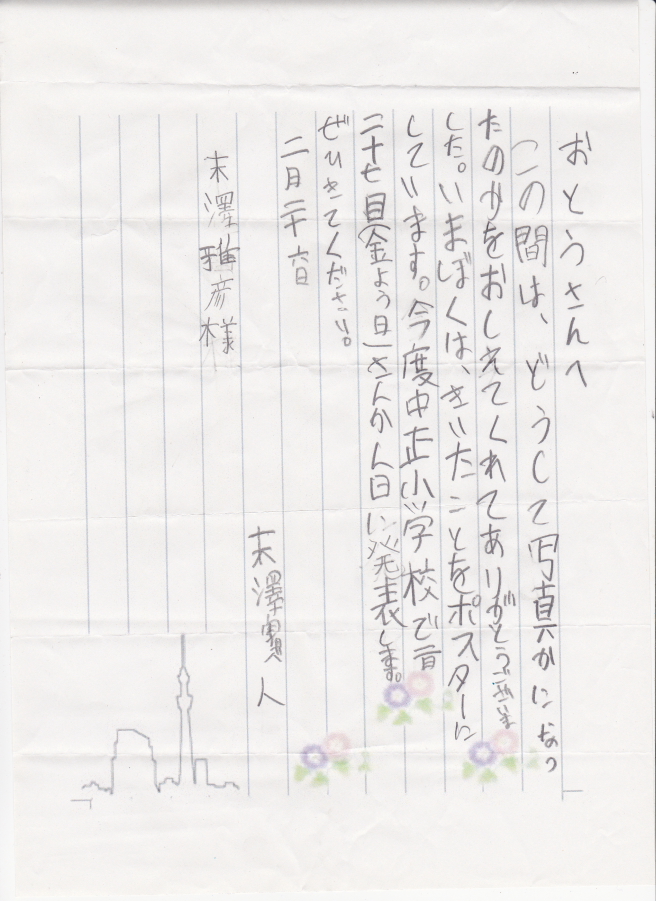 おとうさんへ
この間は、どうして写真かになっ
たのかをおしえてくれてありがとうございま
した。いまぼくは、きいたことをポスターに
しています。今度中正小学校で二月
二十七日(金よう日)さんかん日に発表します。
ぜひきてください。
二月二十六日
末澤
末澤雅彦様